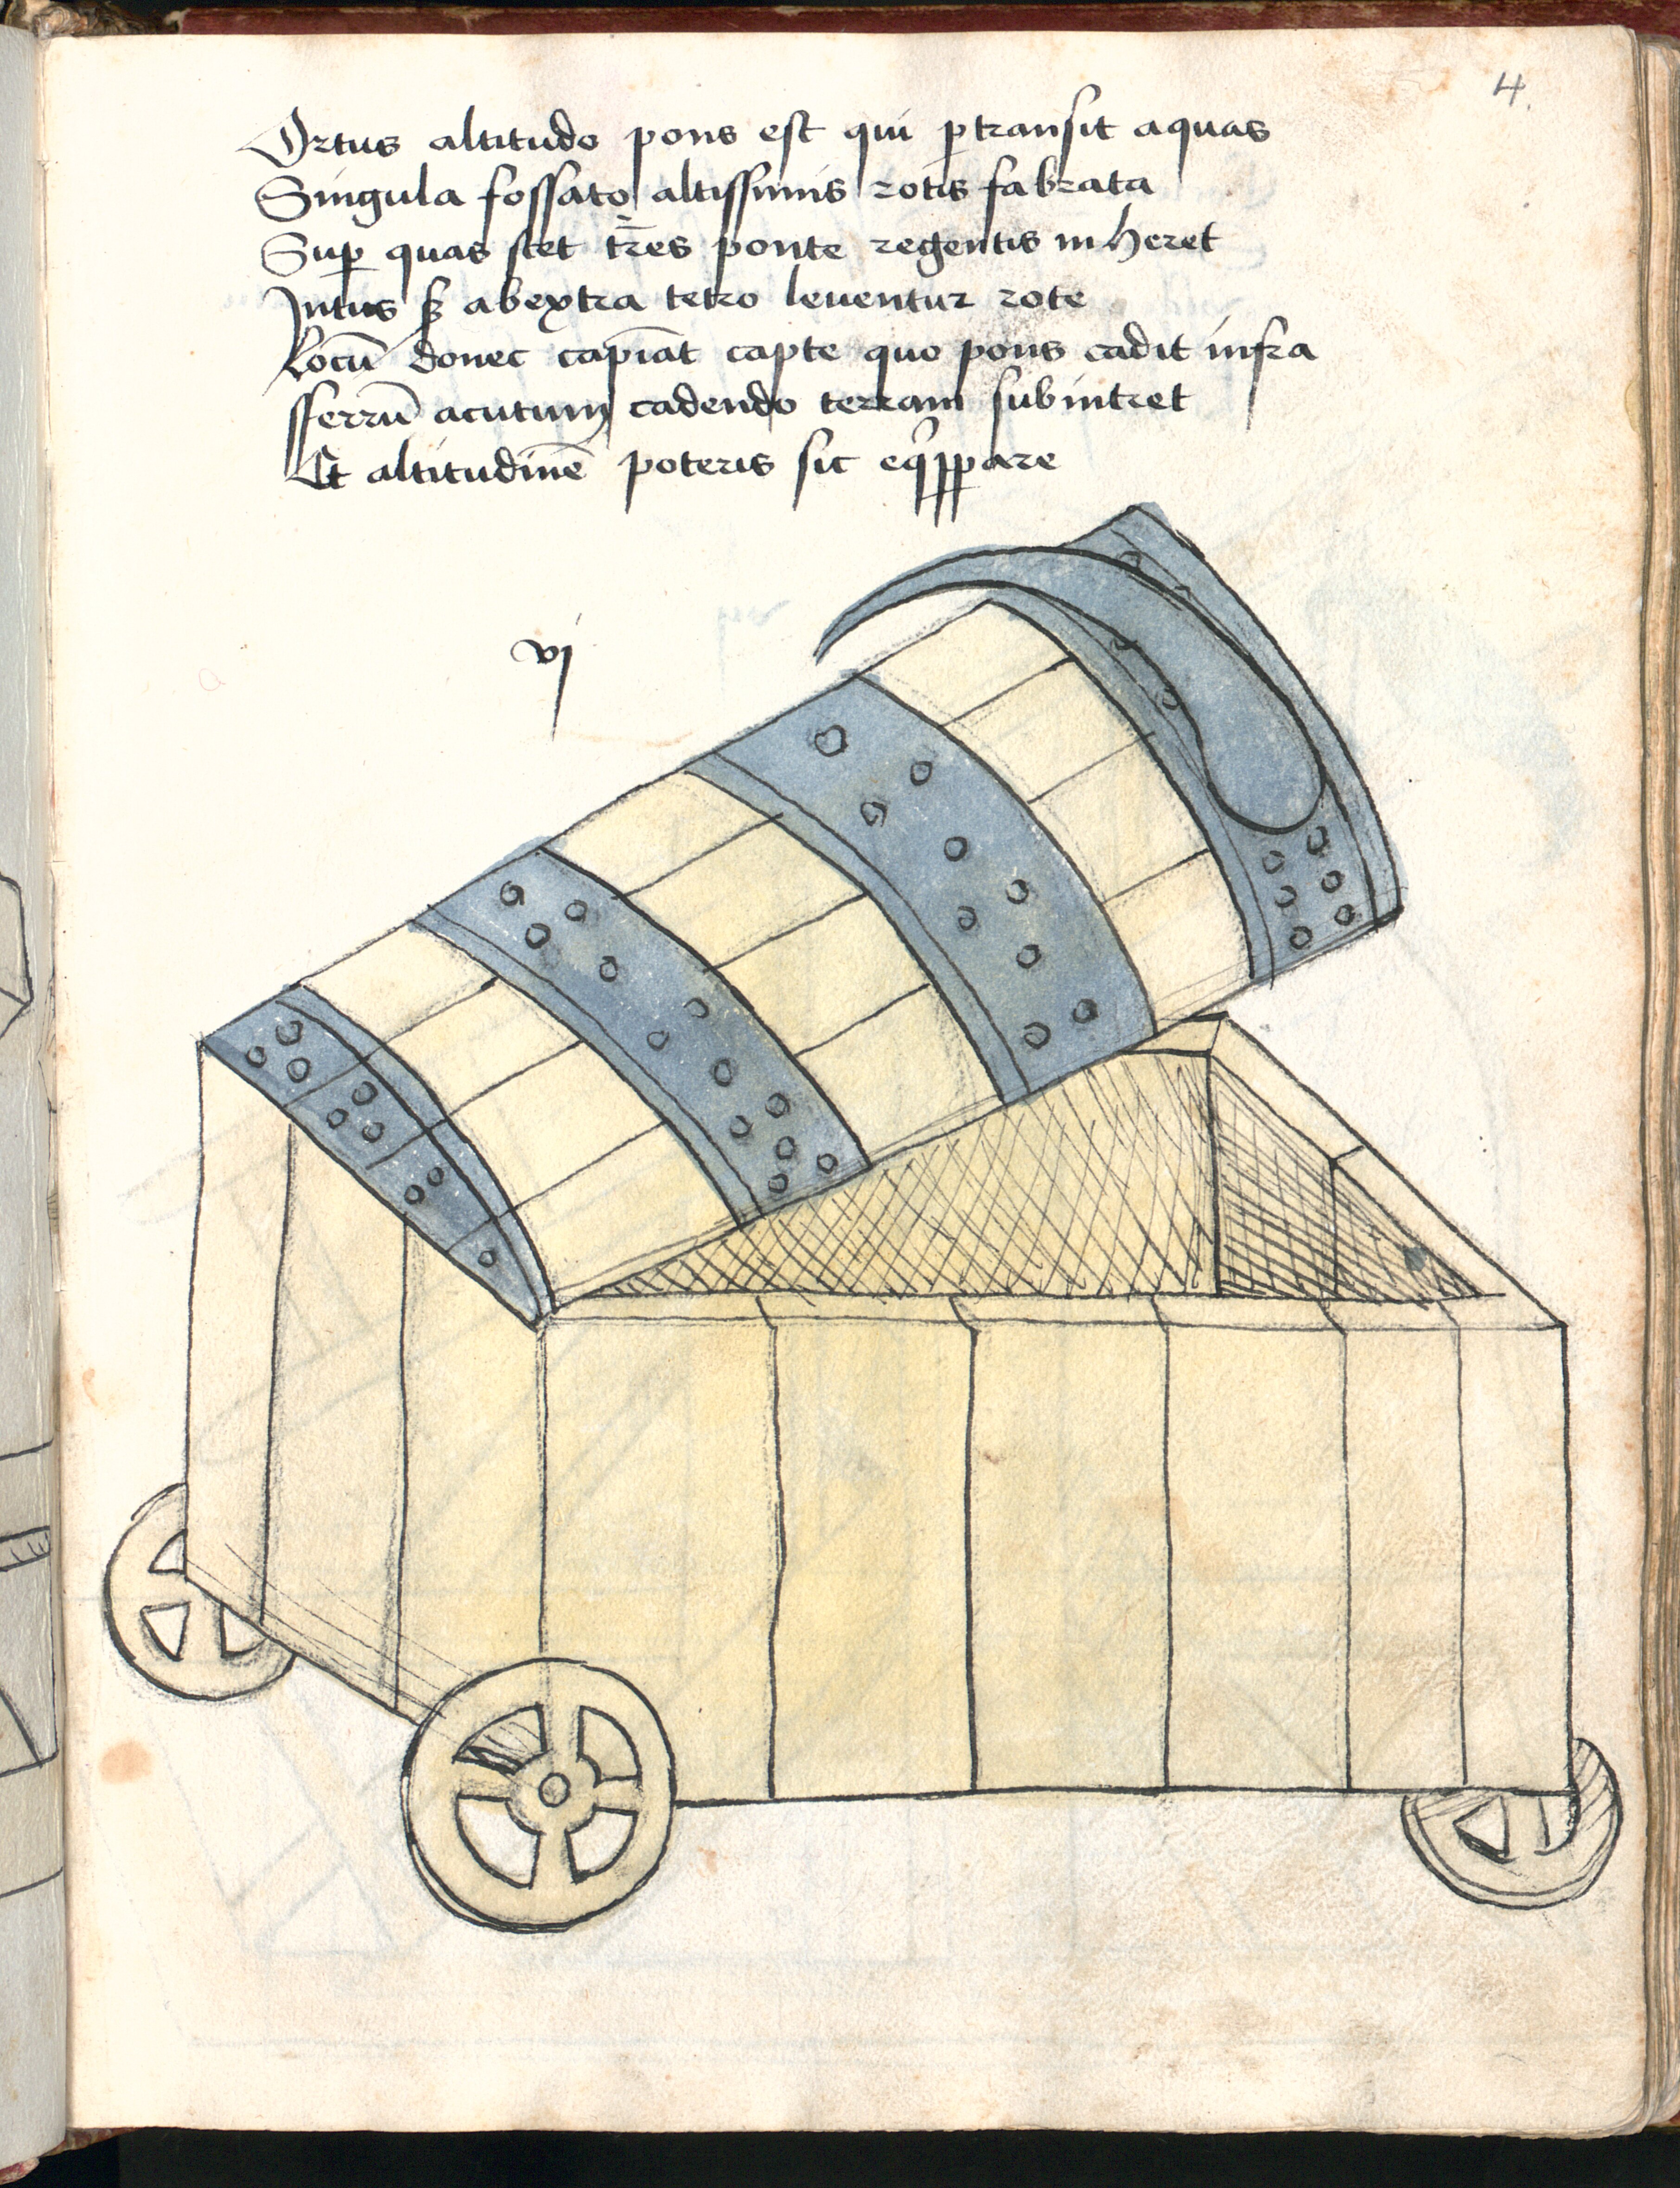 4.
Ortus altitudo pons est qui ꝑtransit aquas
Singula fossato altissimis rotis fabrata
Suꝑ quas stet tr̄es ponte regentis inheret
Intus ß abextra tetro leuentur rote
Locū donec capīat capte quo pons cadit infra
fferrū acutum cadendo terram subintret
Et altitudinē poteris sic
vj